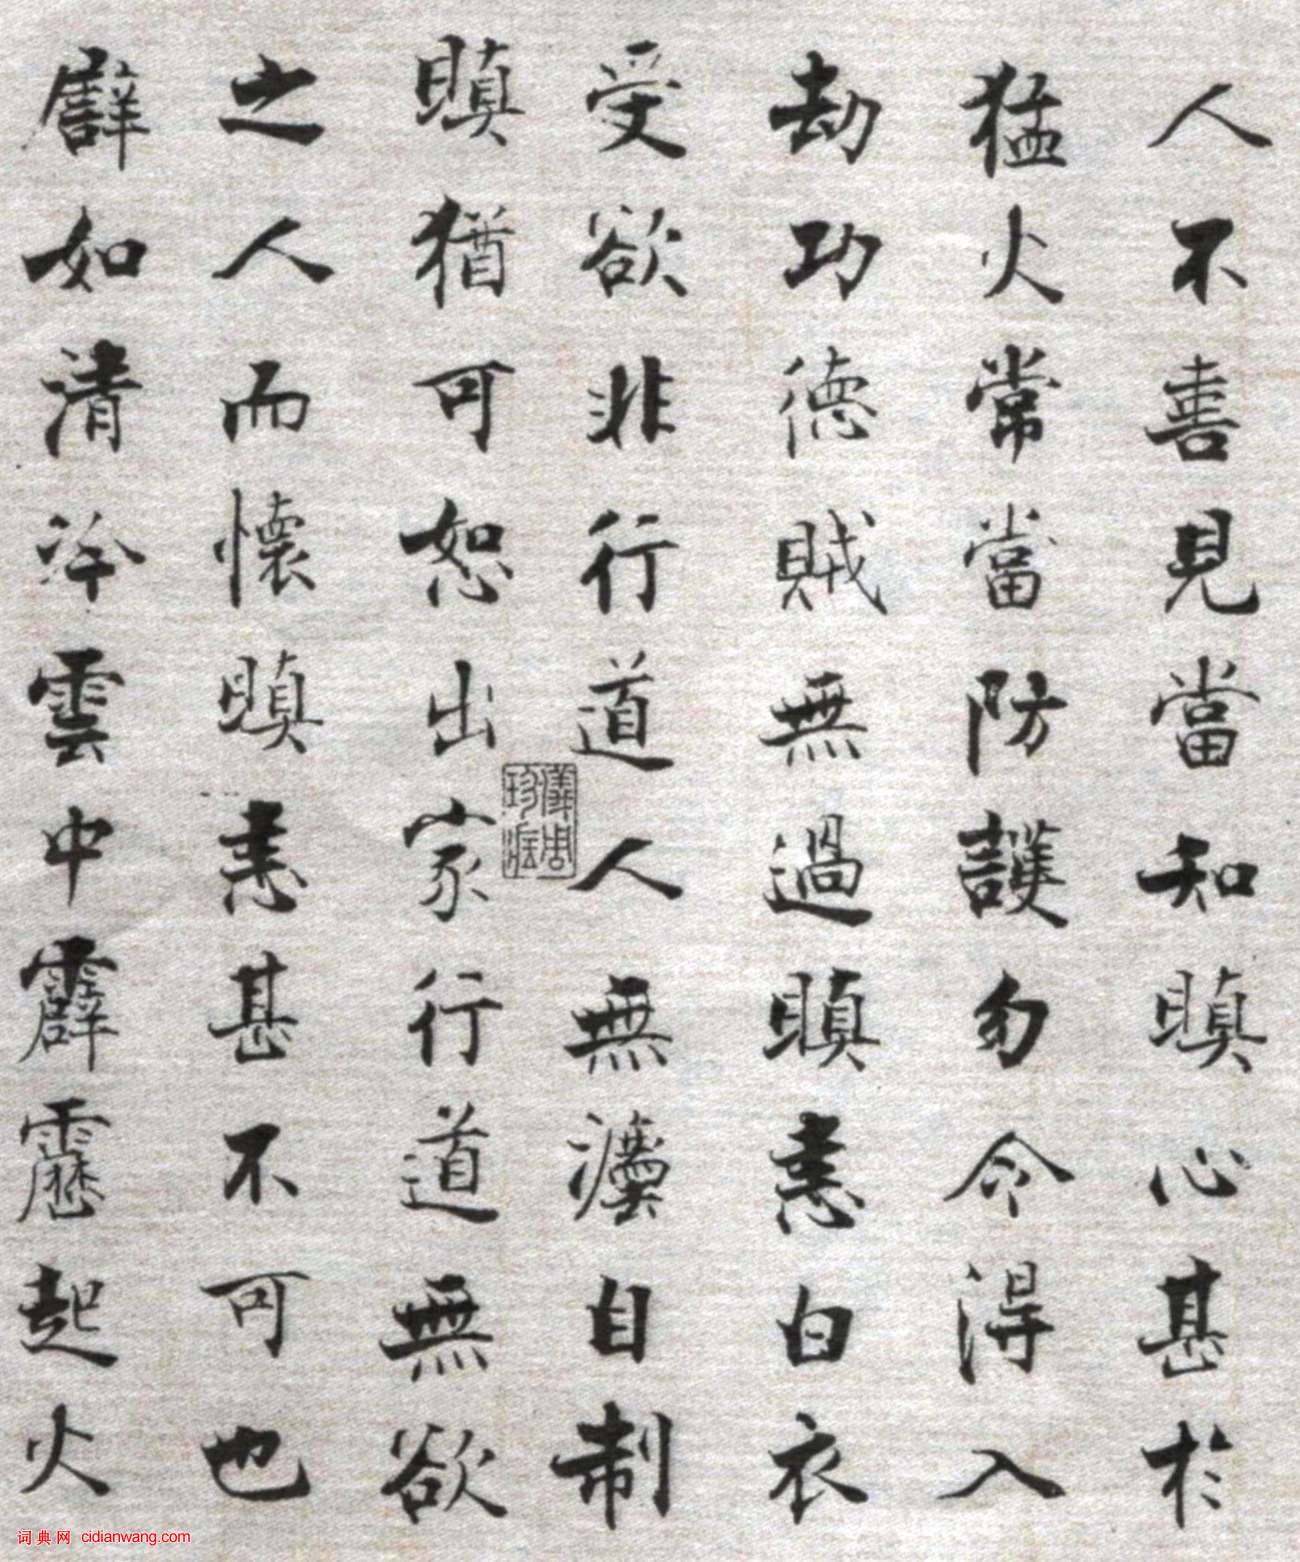 人不善見當知瞋心甚於
猛火常當防護勿令得入
劫功德賊無過瞋恚白衣
受欲非行道人無法自制
瞋猶可恕出家行道無欲
之人而懷瞋恚甚不可也
譬如清泠雲中霹靂起火
儀周珍藏
词典网 cidianwang.com